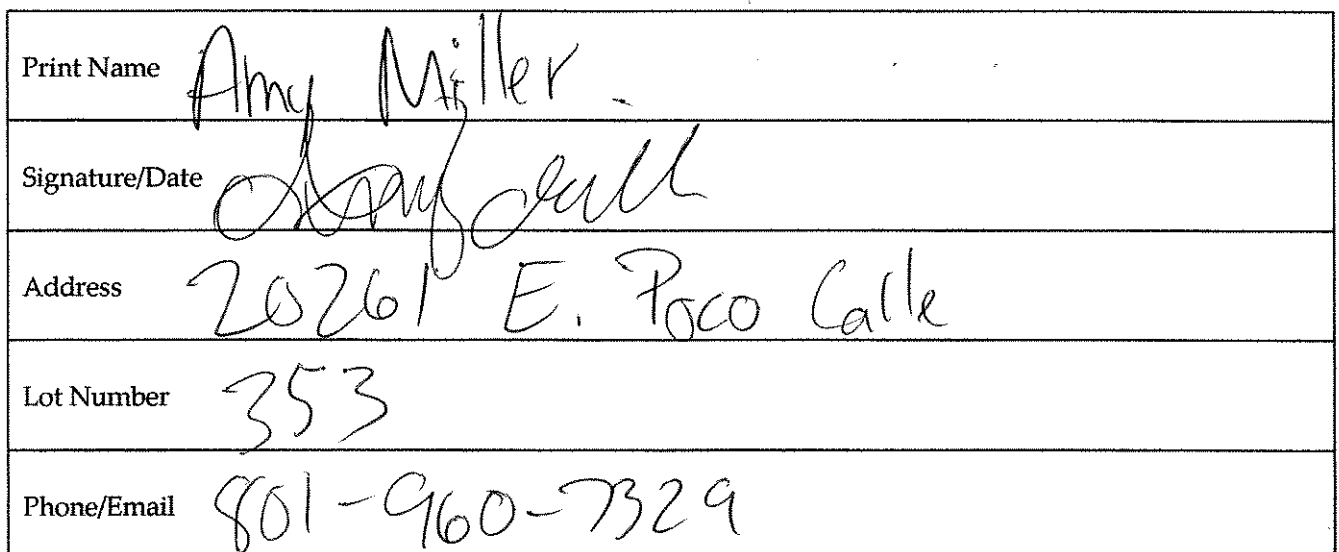 Print Name Amy Miller.
Signature/Date
Address 20261 E. Poco Calle
Lot Number 353
Phone/Email 801-960-7329